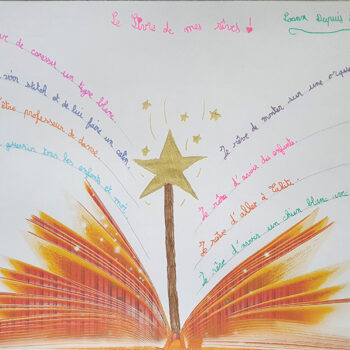 Le Livre de mes rêves !
Loann Dupuis
de caresser un tigre blanc.
voir stitch et de lui faire un calin.
être professeur de danse.
guérir tous les enfants et moi
Je rêve de monter sur une orque
Je rêve d'avoir des enfants.
Je rêve d'aller à Tahiti.
Je rêve d'avoir un chien blanc